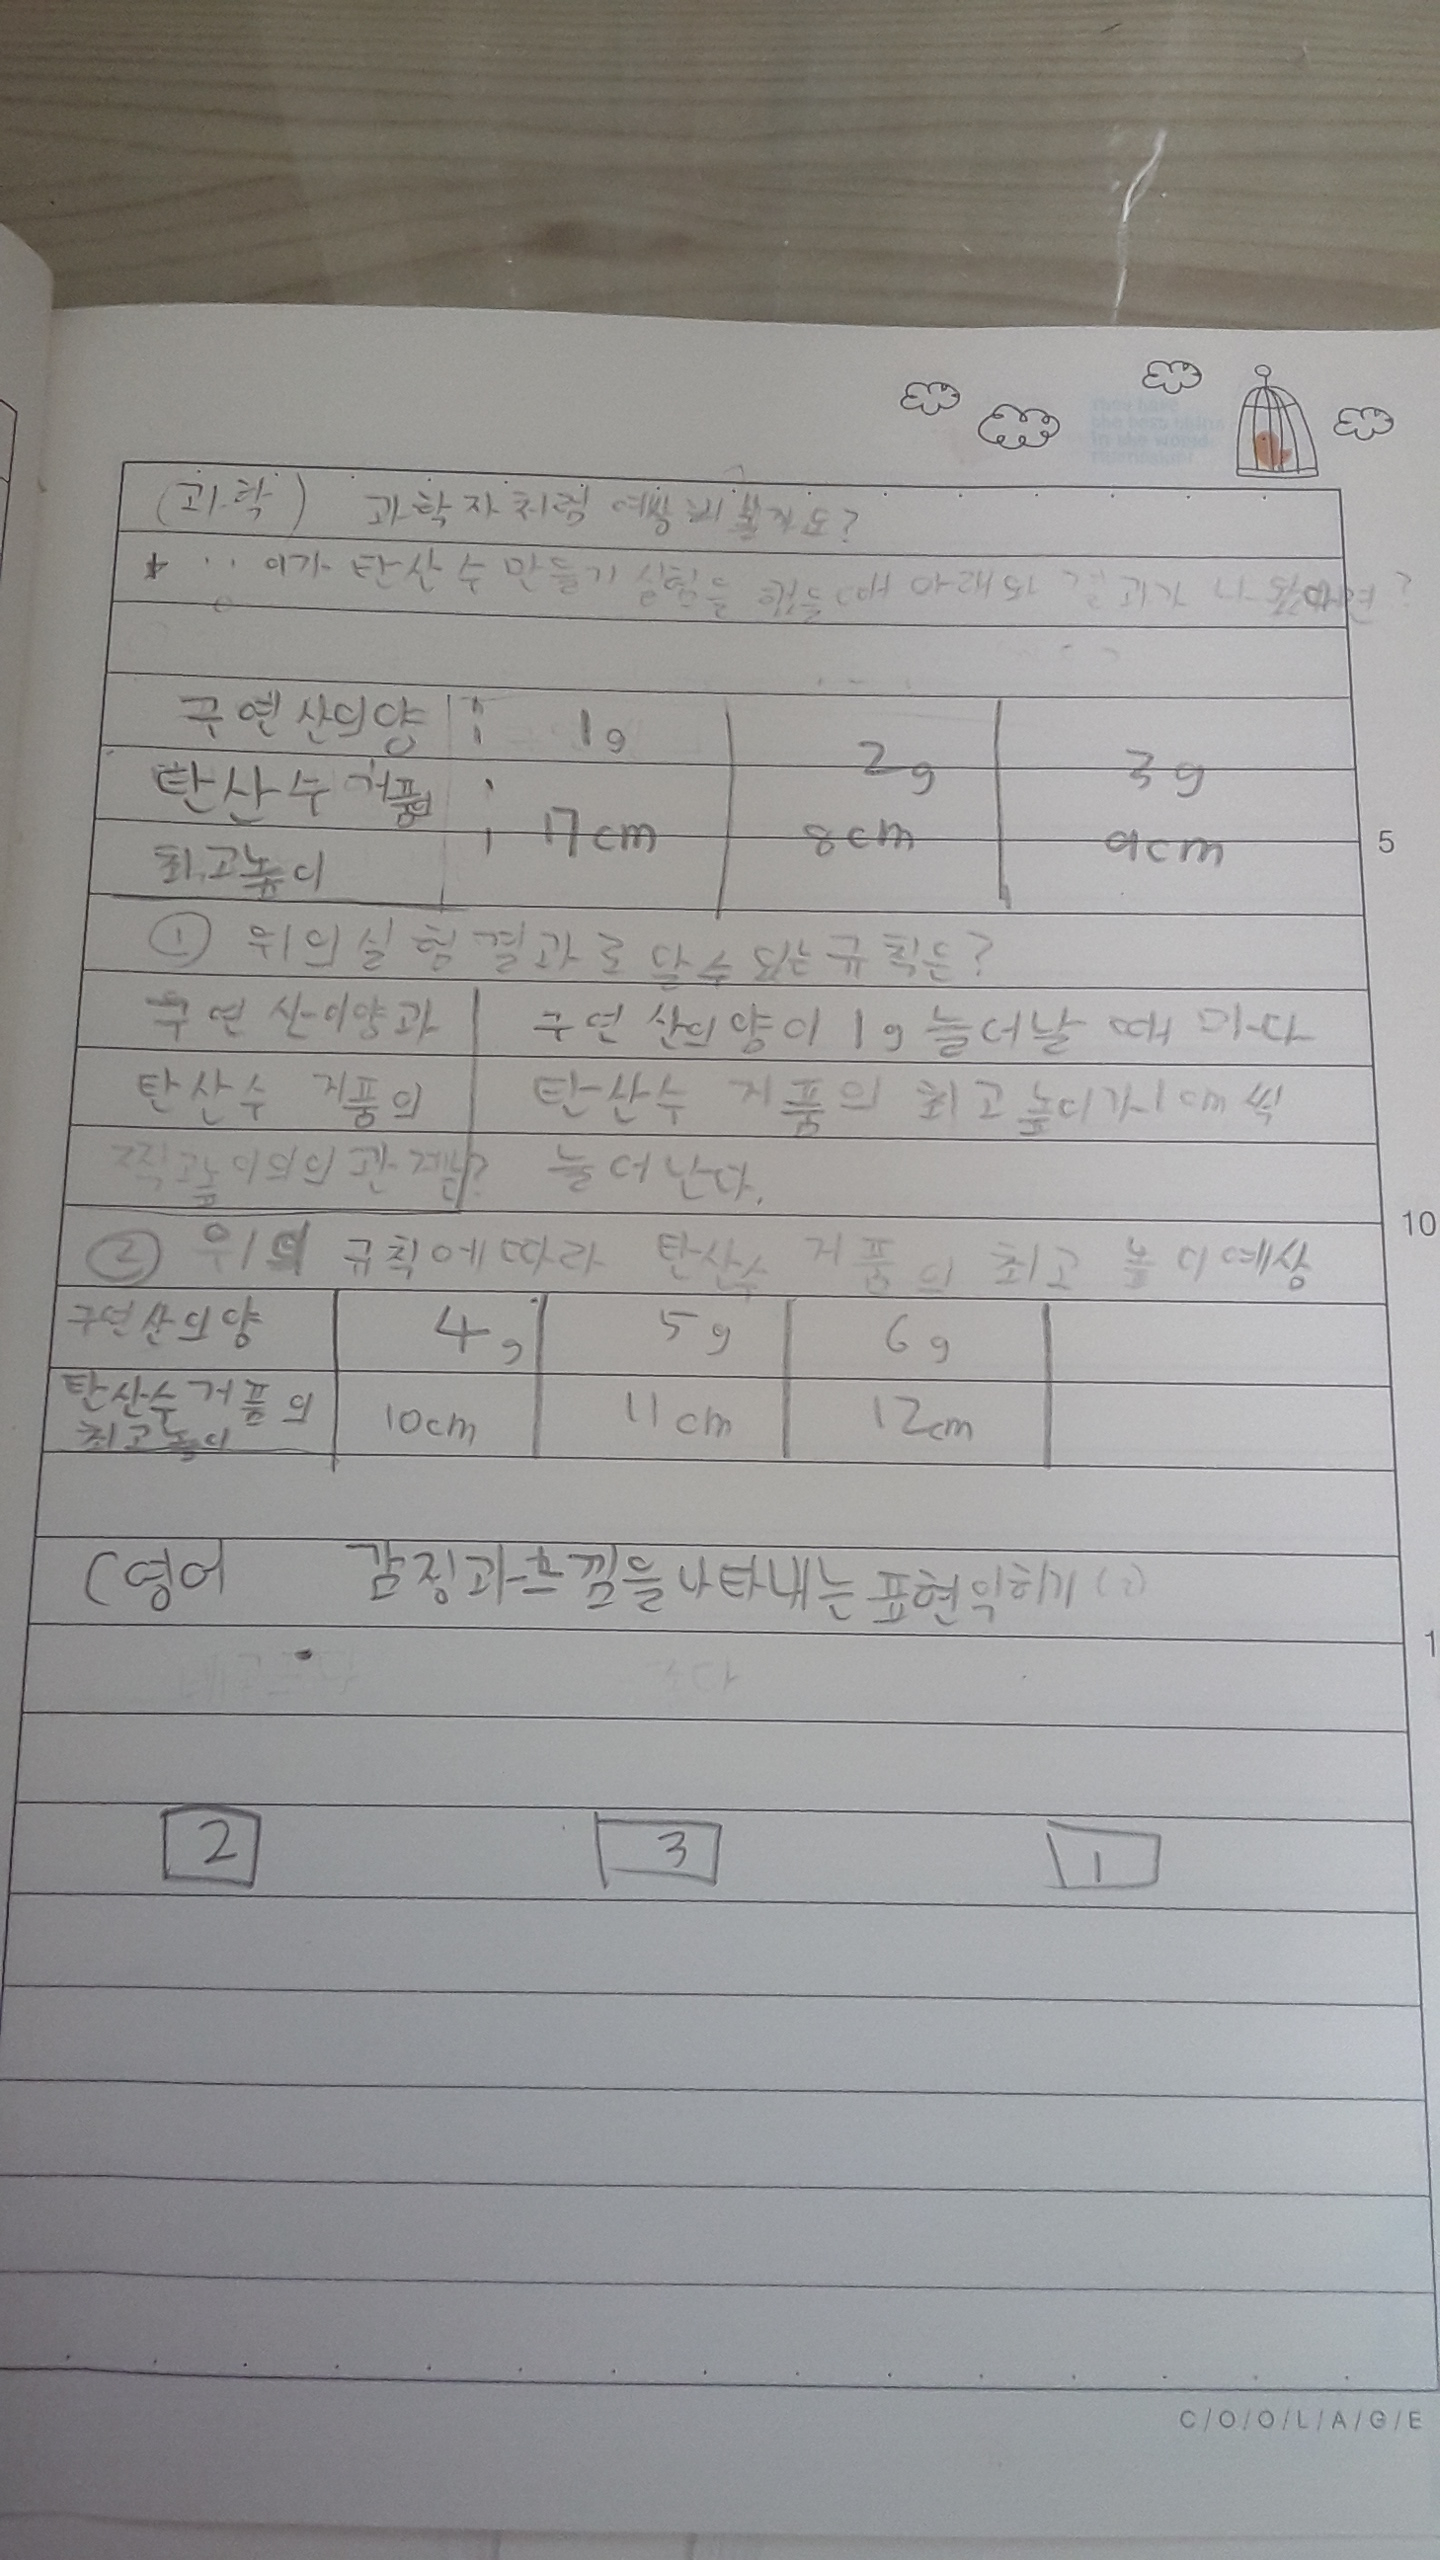 (과학) 과학자처럼 예상해 볼까요?
이가 탄산수 만들기 실험을 했을때 아래와 결과가 나 ?
구연산의양 1g 2g 3g
탄산수 거품의 17cm 8cm 9cm
최고높이
5
① 위의실험결과로 알수 있는규칙은?
구연산이양과 구연산의양이 1g 늘어날 때 마다
탄산수 거품의 탄산수 거품의 최고높이가 1cm 씩
늘어난다.
10
② 위의 규칙에따라 탄산수 거품의 최고 높이예상
구연산의양 4g 5g 6g
탄산수거품의 10cm 11cm 12cm
최고높이
(영어 감정과느낌을나타내는표현익히기
1
2 3 1
C/O/O/L/A/G/E